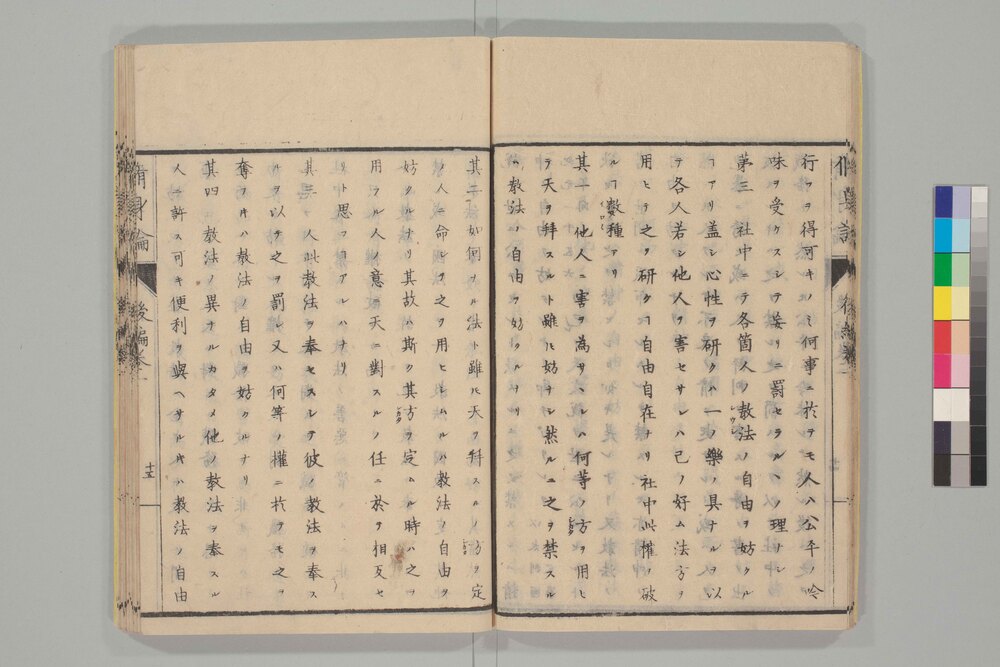 行フヲ得可キノミ何事ニ於テモ人ハ公平ノ吟
味ヲ受ケスシテ妄リニ罰セラルヘノ理ナシ
第三 社中ニテ各箇人ノ教法ノ自由ヲ妨クル
アリ蓋シ心性ヲ研クハ一ノ樂ノ具ナルヲ以
テ各人若シ他人ヲ害セサレハ己ノ好ム法方ヲ
用ヒテ之ヲ研クヿ自由自在ナリ社中此權ヲ破
ルヿ數種アリ
其一他人ニ害ヲ為サヽレハ何等ノ方ヲ用ヒ
テ天ヲ拜スルト雖ヒ妨ナシ然ルニ之ヲ禁スル
ハ教法ノ自由ヲ妨クルナリ
其二如何ナル法ト雖ヒ天ヲ拜スルノ方ヲ定
人ニ命シテ之ヲ用ヒシムルハ教法ノ自由ヲ
妨クルナリ其故ハ斯ク其方ヲ定ムル時ハ之ヲ
用フル人ノ意ト天ニ對スルノ任ニ於テ相反セ
リト思フヿアレハナリ
其三 人此教法ヲ奉セスシテ彼ノ教法ヲ奉ス
ルヲ以テ之ヲ罰シ又ハ何等ノ權ニ於テモ之ヲ
奪フキハ教法ノ自由ヲ妨クルナリ
其四 教法ノ異ナルカタメ他ノ教法ヲ奉スル
人ニ許ス可キ便利ヲ與ヘサルキハ教法ノ自由
脩身論
後編卷一
十五